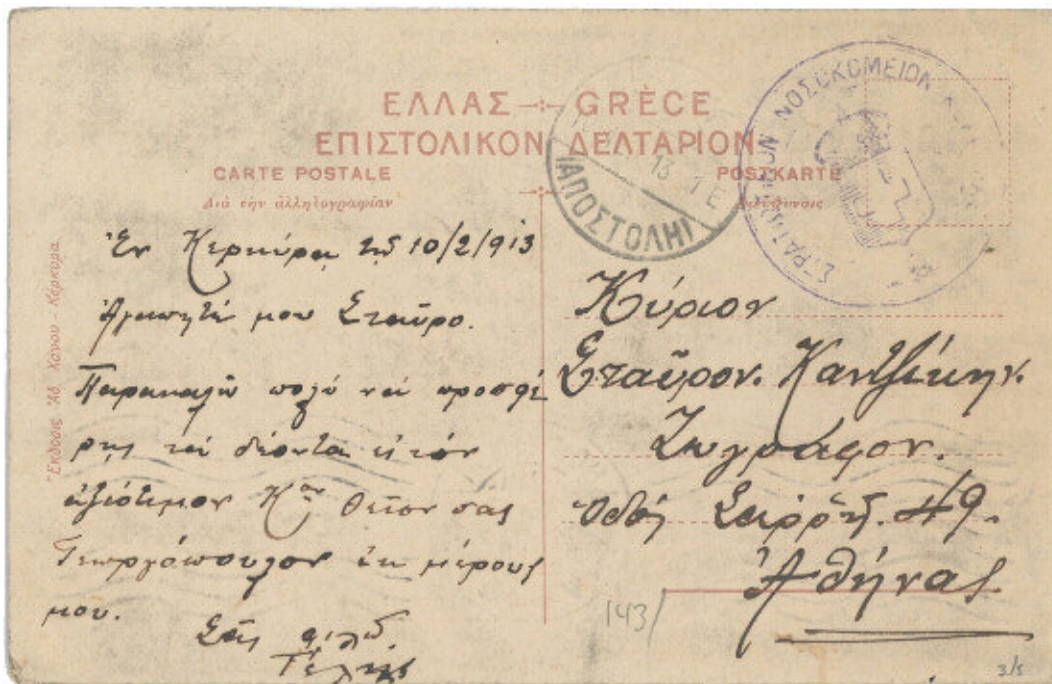 ΕΛΛΑΣ GRÈCE
ΕΠΙΣΤΟΛΙΚΟΝ ΔΕΛΤΑΡΙΟΝ
CARTE POSTALE POSTKARTE
Διὰ τὴν ἀλληλογραφίαν Διεύθυνσις
ΣΤΡΑΤΙΩΤΙΚΟΝ ΝΟΣΟΚΟΜΕΙΟΝ
13
ΑΠΟΣΤΟΛΗ
Ἔκδοσις Ἀδ. Χάνου - Κέρκυρα
Ἐν Κερκύρᾳ τῇ 10/2/913
Ἀγαπητέ μου Σταῦρο.
Παρακαλῶ πολὺ νὰ προσφέ
ρῃς τὰ δέοντα εἰς τὸν
ἀξιότιμον Κον θεῖον σας
Γεωργόπουλον ἐκ μέρους
μου.
Σᾶς φιλῶ
Κύριον
Σταῦρον. Καντζίκην.
Ζωγράφον.
Ὁδὸς 49.
Ἀθήνας
143/
3/5